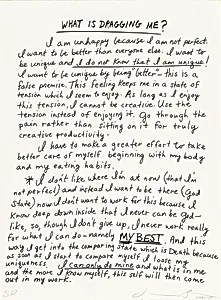 WHAT IS DRAGGING ME?
I am unhappy because I am not perfect.
I want to be better than everyone else. I want to
be unique and I do not know that I am unique!
I want to be unique by being "better" – this is a
false premise. This feeling keeps me in a state of
tension which I seem to enjoy. As long as I enjoy
this tension, I cannot be creative. Use the
tension instead of enjoying it. Go through the
pain rather than sitting on it for truly
creative productivity.
I have to make a greater effort to take
better care of myself beginning with my body
and my eating habits.
* I don't like where I'm at now (that I'm
not perfect) and instead I want to be there (God
State) now I don't want to work for this because I
know deep down inside that I never can be God –
like, so, though I don't give up, I never work really
for what I can do – namely MY BEST. And this
way I get into the comparing state which is Death because
as soon as I start to compare myself I lose my
uniqueness. I can only do mine and what is in me
and the more I know myself, this self will then come
out in my work.